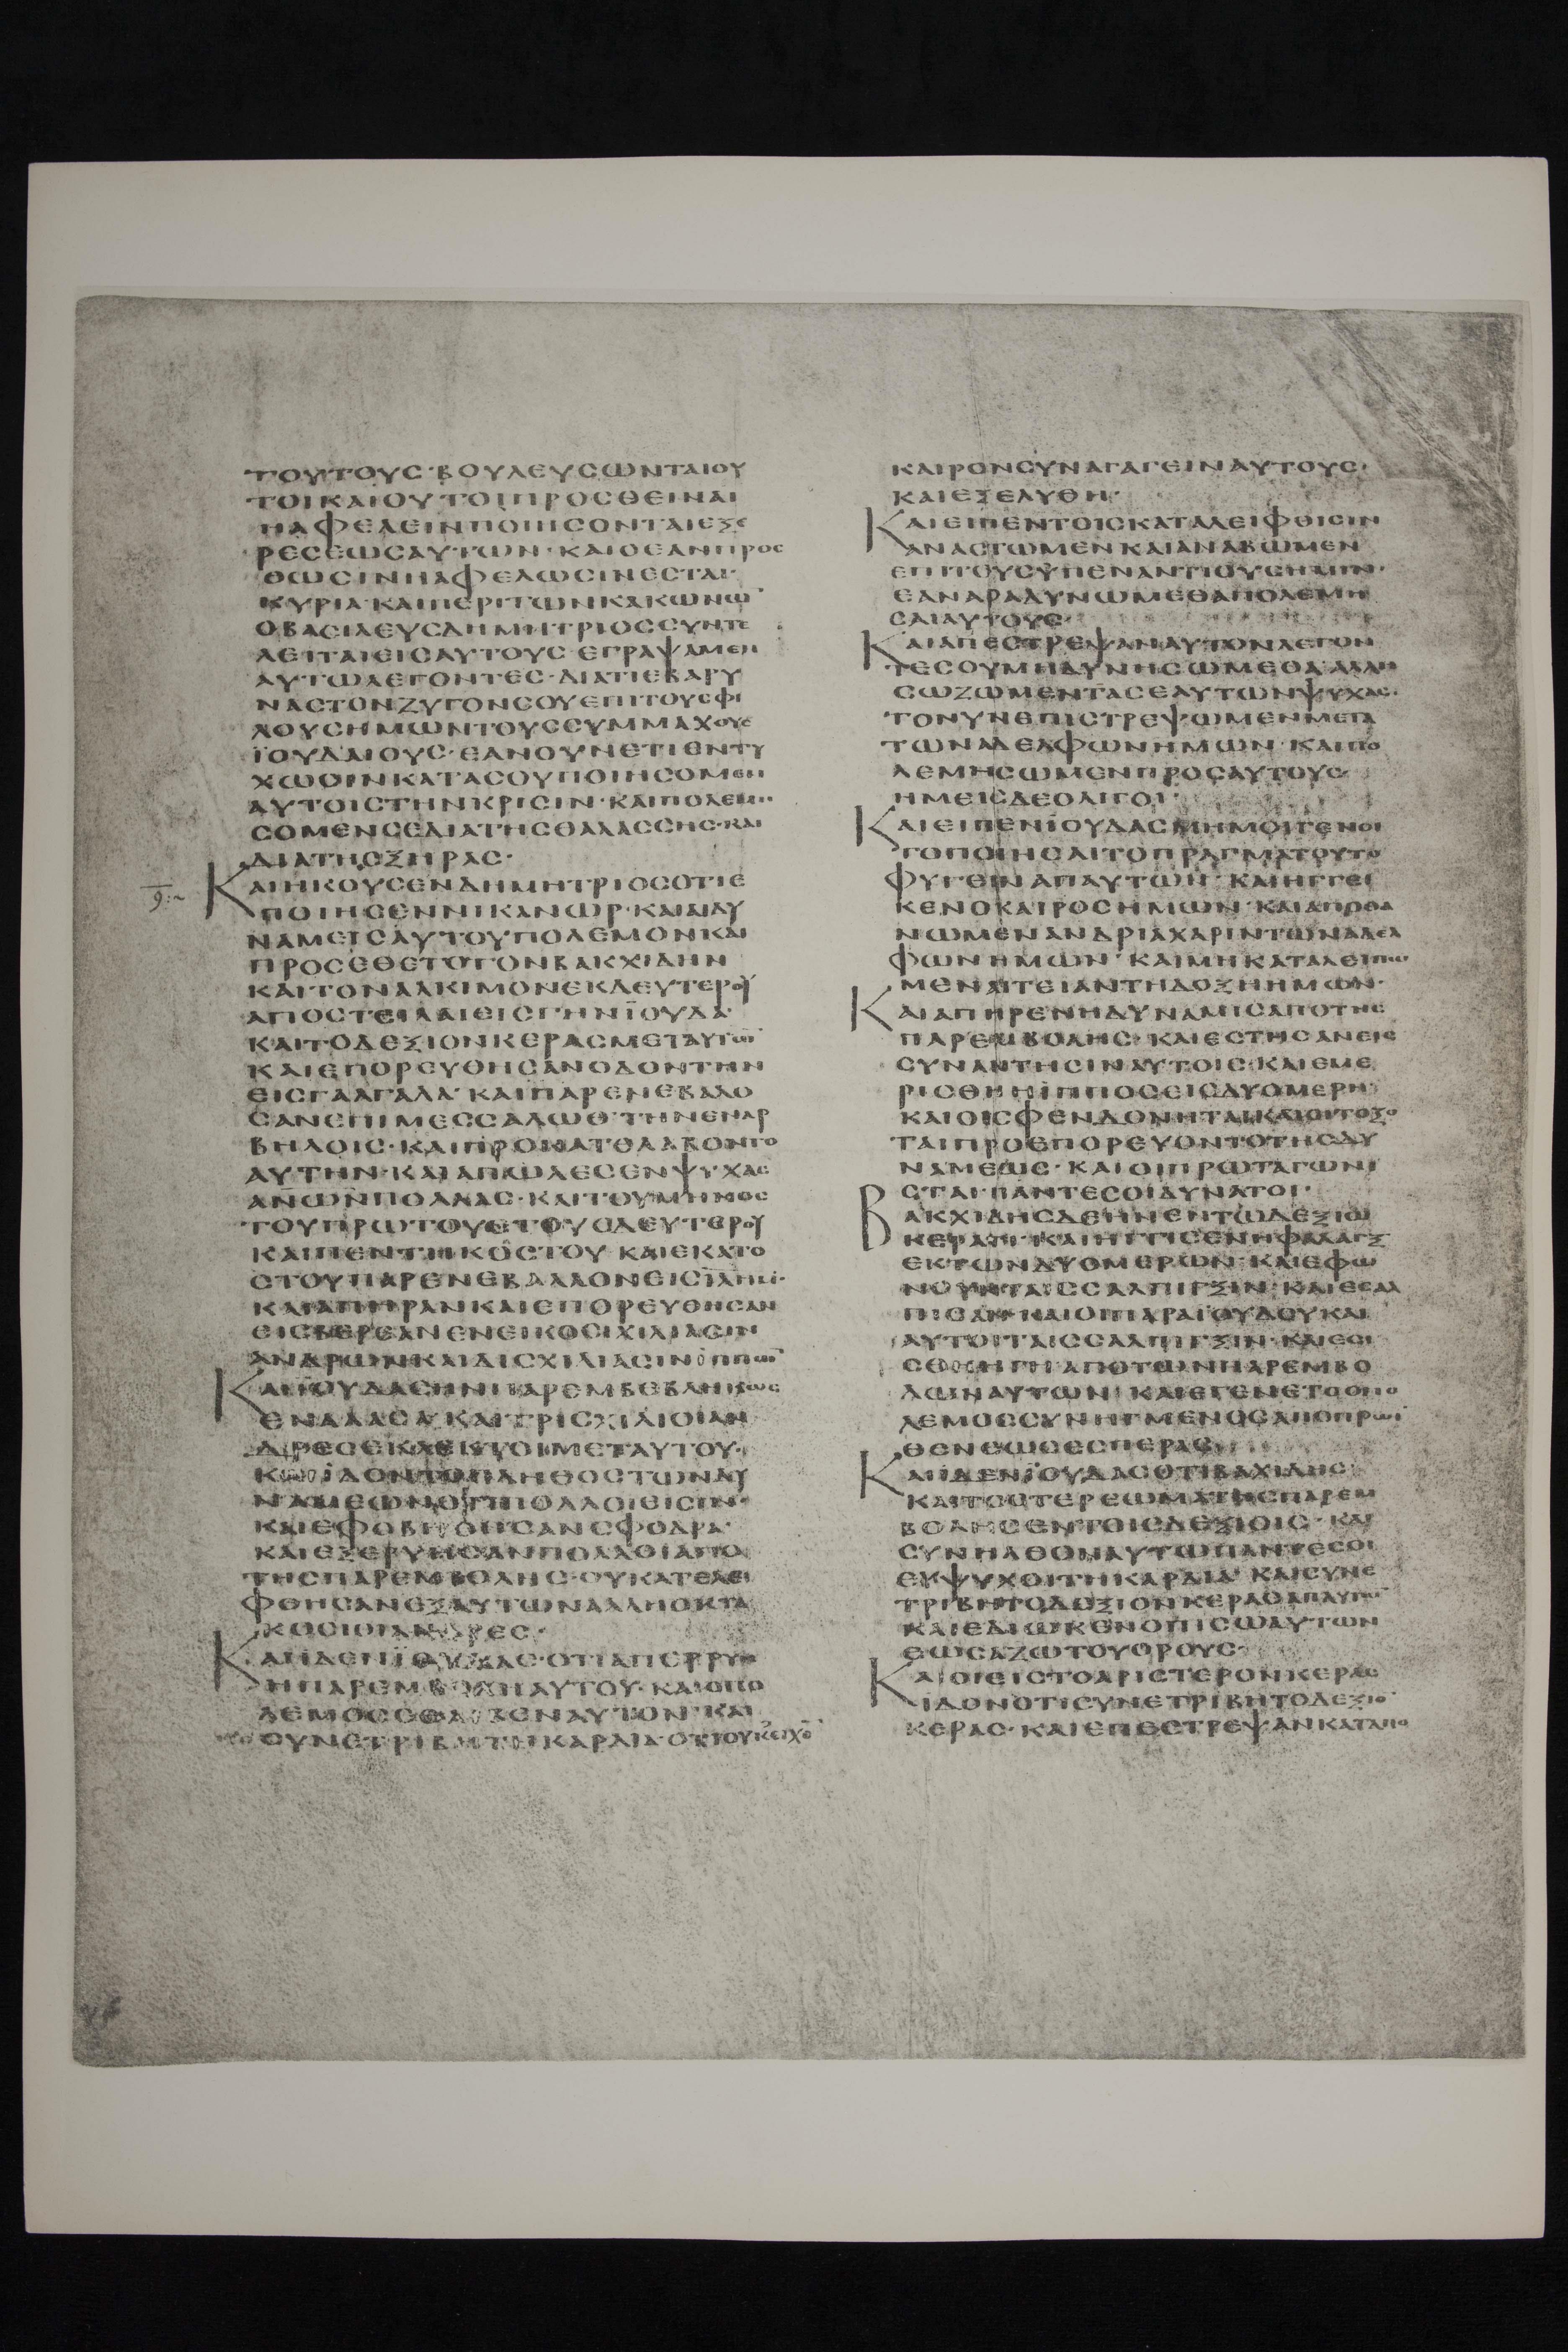 ΤΟΥΤΟΥΣ·ΒΟΥΛΕΥΣΩΝΤΑΙΟΥ
ΤΟΙΚΑΙΟΥΤΟΙΠΡΟΣΘΕΙΝΑΙ
ΗΑΦΕΛΕΙΝΠΟΙΗΣΟΝΤΑΙΕΞΕ
ΡΕΣΕΩΣΑΥΤΩΝ·ΚΑΙΟΕΑΝΠΡΟΣ
ΘΩΣΙΝΗΑΦΕΛΩΣΙΝΕΣΤΑΙ·
ΚΥΡΙΑ·ΚΑΙΠΕΡΙΤΩΝΚΑΚΩΝΩ̅
ΟΒΑΣΙΛΕΥΣΔΗΜΗΤΡΙΟΣΣΥΝΤΕ
ΛΕΙΤΑΙΕΙΣΑΥΤΟΥΣ·ΕΓΡΑΨΑΜΕΝ
ΑΥΤΩΛΕΓΟΝΤΕΣ·ΔΙΑΤΙΕΒΑΡΥ
ΝΑΣΤΟΝΖΥΓΟΝΣΟΥΕΠΙΤΟΥΣΦΙ
ΛΟΥΣΗΜΩΝΤΟΥΣΣΥΜΜΑΧΟΥΣ
ΪΟΥΔΑΙΟΥΣ·ΕΑΝΟΥΝΕΤΙΕΝΤΥ
ΧΩΣΙΝΚΑΤΑΣΟΥΠΟΙΗΣΟΜΕΝ
ΑΥΤΟΙΣΤΗΝΚΡΙΣΙΝ·ΚΑΙΠΟΛΕΜΗ
ΣΟΜΕΝΣΕΔΙΑΤΗΣΘΑΛΑΣΣΗΣ·ΚΑΙ
ΔΙΑΤΗΣΞΗΡΑΣ·
ΚΑΙΗΚΟΥΣΕΝΔΗΜΗΤΡΙΟΣΟΤΙΕ
ΠΟΙΗΣΕΝΝΙΚΑΝΩΡ·ΚΑΙΔΥ
ΝΑΜΕΙΣΑΥΤΟΥΠΟΛΕΜΟΝΚΑΙ
ΠΡΟΣΕΘΕΤΟΤΟΝΒΑΚΧΙΔΗΝ
ΚΑΙΤΟΝΑΛΚΙΜΟΝΕΚΔΕΥΤΕΡΟΥ
ΑΠΟΣΤΕΙΛΑΙΕΙΣΓΗΝΪΟΥΔΑ·
ΚΑΙΤΟΔΕΞΙΟΝΚΕΡΑΣΜΕΤΑΥΤΩ̅
ΚΑΙΕΠΟΡΕΥΘΗΣΑΝΟΔΟΝΤΗΝ
ΕΙΣΓΑΛΓΑΛΑ·ΚΑΙΠΑΡΕΝΕΒΑΛΟ
ΣΑΝΕΠΙΜΕΣΣΑΛΩΘ·ΤΗΝΕΝΑΡ
ΒΗΛΟΙΣ·ΚΑΙΠΡΟΚΑΤΕΛΑΒΟΝΤΟ
ΑΥΤΗΝ·ΚΑΙΑΠΩΛΕΣΕΝΨΥΧΑΣ
ΑΝ̅Ω̅Ν̅ΠΟΛΛΑΣ·ΚΑΙΤΟΥΜΗΝΟΣ
ΤΟΥΠΡΩΤΟΥΕΤΟΥΣΔΕΥΤΕΡΟΥ
ΚΑΙΠΕΝΤΗΚΟΣΤΟΥΚΑΙΕΚΑΤΟ
ΣΤΟΥΠΑΡΕΝΕΒΑΛΛΟΝΕΙΣΪΛΗΜ·
ΚΑΙΑΠΗΡΑΝΚΑΙΕΠΟΡΕΥΘΗΣΑΝ
ΕΙΣΒΕΡΕΑΝΕΝΕΙΚΟΣΙΧΙΛΙΑΣΙΝ
ΑΝΔΡΩΝΚΑΙΔΙΣΧΙΛΙΑΣΙΝΙΠΠΩ̅
ΚΑΙΪΟΥΔΑΣΗΝΠΑΡΕΜΒΕΒΛΗΚΩΣ
ΕΝΑΛΑΣΑ·ΚΑΙΤΡΙΣΧΙΛΙΟΙΑΝ
ΔΡΕΣΕΚΛΕΚΤΟΙΜΕΤΑΥΤΟΥ·
ΚΑΙΪΔΟΝΤΟΠΛΗΘΟΣΤΩΝΔΥ
ΝΑΜΕΩΝΟΤΙΠΟΛΛΟΙΕΙΣΙΝ·
ΚΑΙΕΦΟΒΗΘΗΣΑΝΣΦΟΔΡΑ·
ΚΑΙΕΞΕΡΥΗΣΑΝΠΟΛΛΟΙΑΠΟ
ΤΗΣΠΑΡΕΜΒΟΛΗΣ·ΟΥΚΑΤΕΛΕΙ
ΦΘΗΣΑΝΕΞΑΥΤΩΝΑΛΛΗΟΚΤΑ
ΚΟΣΙΟΙΑΝΔΡΕΣ·
ΚΑΙΪΔΕΝΪΟΥΔΑΣ·ΟΤΙΑΠΕΡΡΥΗ
ΗΠΑΡΕΜΒΟΛΗΑΥΤΟΥ·ΚΑΙΟΠΟ
ΛΕΜΟΣΕΘΛΙΒΕΝΑΥΤΟΝ·ΚΑΙ
ΣΥΝΕΤΡΙΒΗΤΗΚΑΡΔΙΑ·ΟΤΙΟΥΚΕΙΧΕ̅
ΚΑΙΡΟΝΣΥΝΑΓΑΓΕΙΝΑΥΤΟΥΣ·
ΚΑΙΕΞΕΛΥΘΗ·
ΚΑΙΕΙΠΕΝΤΟΙΣΚΑΤΑΛΕΙΦΘΙΣΙΝ
ΑΝΑΣΤΩΜΕΝΚΑΙΑΝΑΒΩΜΕΝ
ΕΠΙΤΟΥΣΫΠΕΝΑΝΤΙΟΥΣΗΜΙΝ·
ΕΑΝΑΡΑΔΥΝΩΜΕΘΑΠΟΛΕΜΗ
ΣΑΙΑΥΤΟΥΣ·
ΚΑΙΑΠΕΣΤΡΕΨΑΝΑΥΤΟΝΛΕΓΟΝ
ΤΕΣΟΥΜΗΔΥΝΗΣΩΜΕΘΑ·ΑΛΛΗ
ΣΩΖΩΜΕΝΤΑΣΕΑΥΤΩΝΨΥΧΑΣ·
ΤΟΝΥΝΕΠΙΣΤΡΕΨΩΜΕΝΜΕΤΑ
ΤΩΝΑΔΕΛΦΩΝΗΜΩΝ·ΚΑΙΠΟ
ΛΕΜΗΣΩΜΕΝΠΡΟΣΑΥΤΟΥΣ·
ΗΜΕΙΣΔΕΟΛΙΓΟΙ·
ΚΑΙΕΙΠΕΝΪΟΥΔΑΣΜΗΜΟΙΓΕΝΟΙ
ΤΟΠΟΙΗΣΑΙΤΟΠΡΑΓΜΑΤΟΥΤΟ
ΦΥΓΕΙΝΑΠΑΥΤΩΝ·ΚΑΙΗΓΓΕΙ
ΚΕΝΟΚΑΙΡΟΣΗΜΩΝ·ΚΑΙΑΠΟΘΑ
ΝΩΜΕΝΑΝΔΡΙΑΧΑΡΙΝΤΩΝΑΔΕΛ
ΦΩΝΗΜΩΝ·ΚΑΙΜΗΚΑΤΑΛΕΙΠΩ
ΜΕΝΑΙΤΕΙΑΝΤΗΔΟΞΗΗΜΩΝ·
ΚΑΙΑΠΗΡΕΝΗΔΥΝΑΜΙΣΑΠΟΤΗΣ
ΠΑΡΕΜΒΟΛΗΣ·ΚΑΙΕΣΤΗΣΑΝΕΙΣ
ΣΥΝΑΝΤΗΣΙΝΑΥΤΟΙΣ·ΚΑΙΕΜΕ
ΡΙΣΘΗΗΪΠΠΟΣΕΙΣΔΥΟΜΕΡΗ·
ΚΑΙΟΙΣΦΕΝΔΟΝΗΤΑΙΚΑΙΟΙΤΟΞΟ
ΤΑΙΠΡΟΕΠΟΡΕΥΟΝΤΟΤΗΣΔΥ
ΝΑΜΕΩΣ·ΚΑΙΟΙΠΡΩΤΑΓΩΝΙ
ΣΤΑΙ·ΠΑΝΤΕΣΟΙΔΥΝΑΤΟΙ·
ΒΑΚΧΙΔΗΣΔΕΗΝΕΝΤΩΔΕΞΙΩ
ΚΕΡΑΤΙ·ΚΑΙΗΓΓΙΣΕΝΗΦΑΛΑΓΞ
ΕΚΤΩΝΔΥΟΜΕΡΩΝ·ΚΑΙΕΦΩ
ΝΟΥΝΤΑΙΣΣΑΛΠΙΓΞΙΝ·ΚΑΙΕΣΑΛ
ΠΙΣΑΝΚΑΙΟΙΠΑΡΑΪΟΥΔΟΥΚΑΙ
ΑΥΤΟΙΤΑΙΣΣΑΛΠΙΓΞΙΝ·ΚΑΙΕΣΙ
ΣΘΗΗΓΗΑΠΟΤΩΝΠΑΡΕΜΒΟ
ΛΩΝΑΥΤΩΝ·ΚΑΙΕΓΕΝΕΤΟΟΠΟ
ΛΕΜΟΣΣΥΝΗΓΜΕΝΟΣΑΠΟΠΡΩΙ
ΘΕΝΕΩΣΕΣΠΕΡΑΣ·
ΚΑΙΪΔΕΝΪΟΥΔΑΣΟΤΙΒΑΧΙΔΗΣ·
ΚΑΙΤΟΣΤΕΡΕΩΜΑΤΗΣΠΑΡΕΜ
ΒΟΛΗΣΕΝΤΟΙΣΔΕΞΙΟΙΣ·ΚΑΙ
ΣΥΝΗΛΘΟΝΑΥΤΩΠΑΝΤΕΣΟΙ
ΕΥΨΥΧΟΙΤΗΚΑΡΔΙΑ·ΚΑΙΣΥΝΕ
ΤΡΙΒΗΤΟΔΕΞΙΟΝΚΕΡΑΣΑΠΑΥΤΩ̅
ΚΑΙΕΔΙΩΚΕΝΟΠΙΣΩΑΥΤΩΝ
ΕΩΣΑΖΩΤΟΥΟΡΟΥΣ·
ΚΑΙΟΙΕΙΣΤΟΑΡΙΣΤΕΡΟΝΚΕΡΑΣ
ΙΔΟΝΟΤΙΣΥΝΕΤΡΙΒΗΤΟΔΕΞΙΟ̅
ΚΕΡΑΣ·ΚΑΙΕΠΕΣΤΡΕΨΑΝΚΑΤΑΠΟ